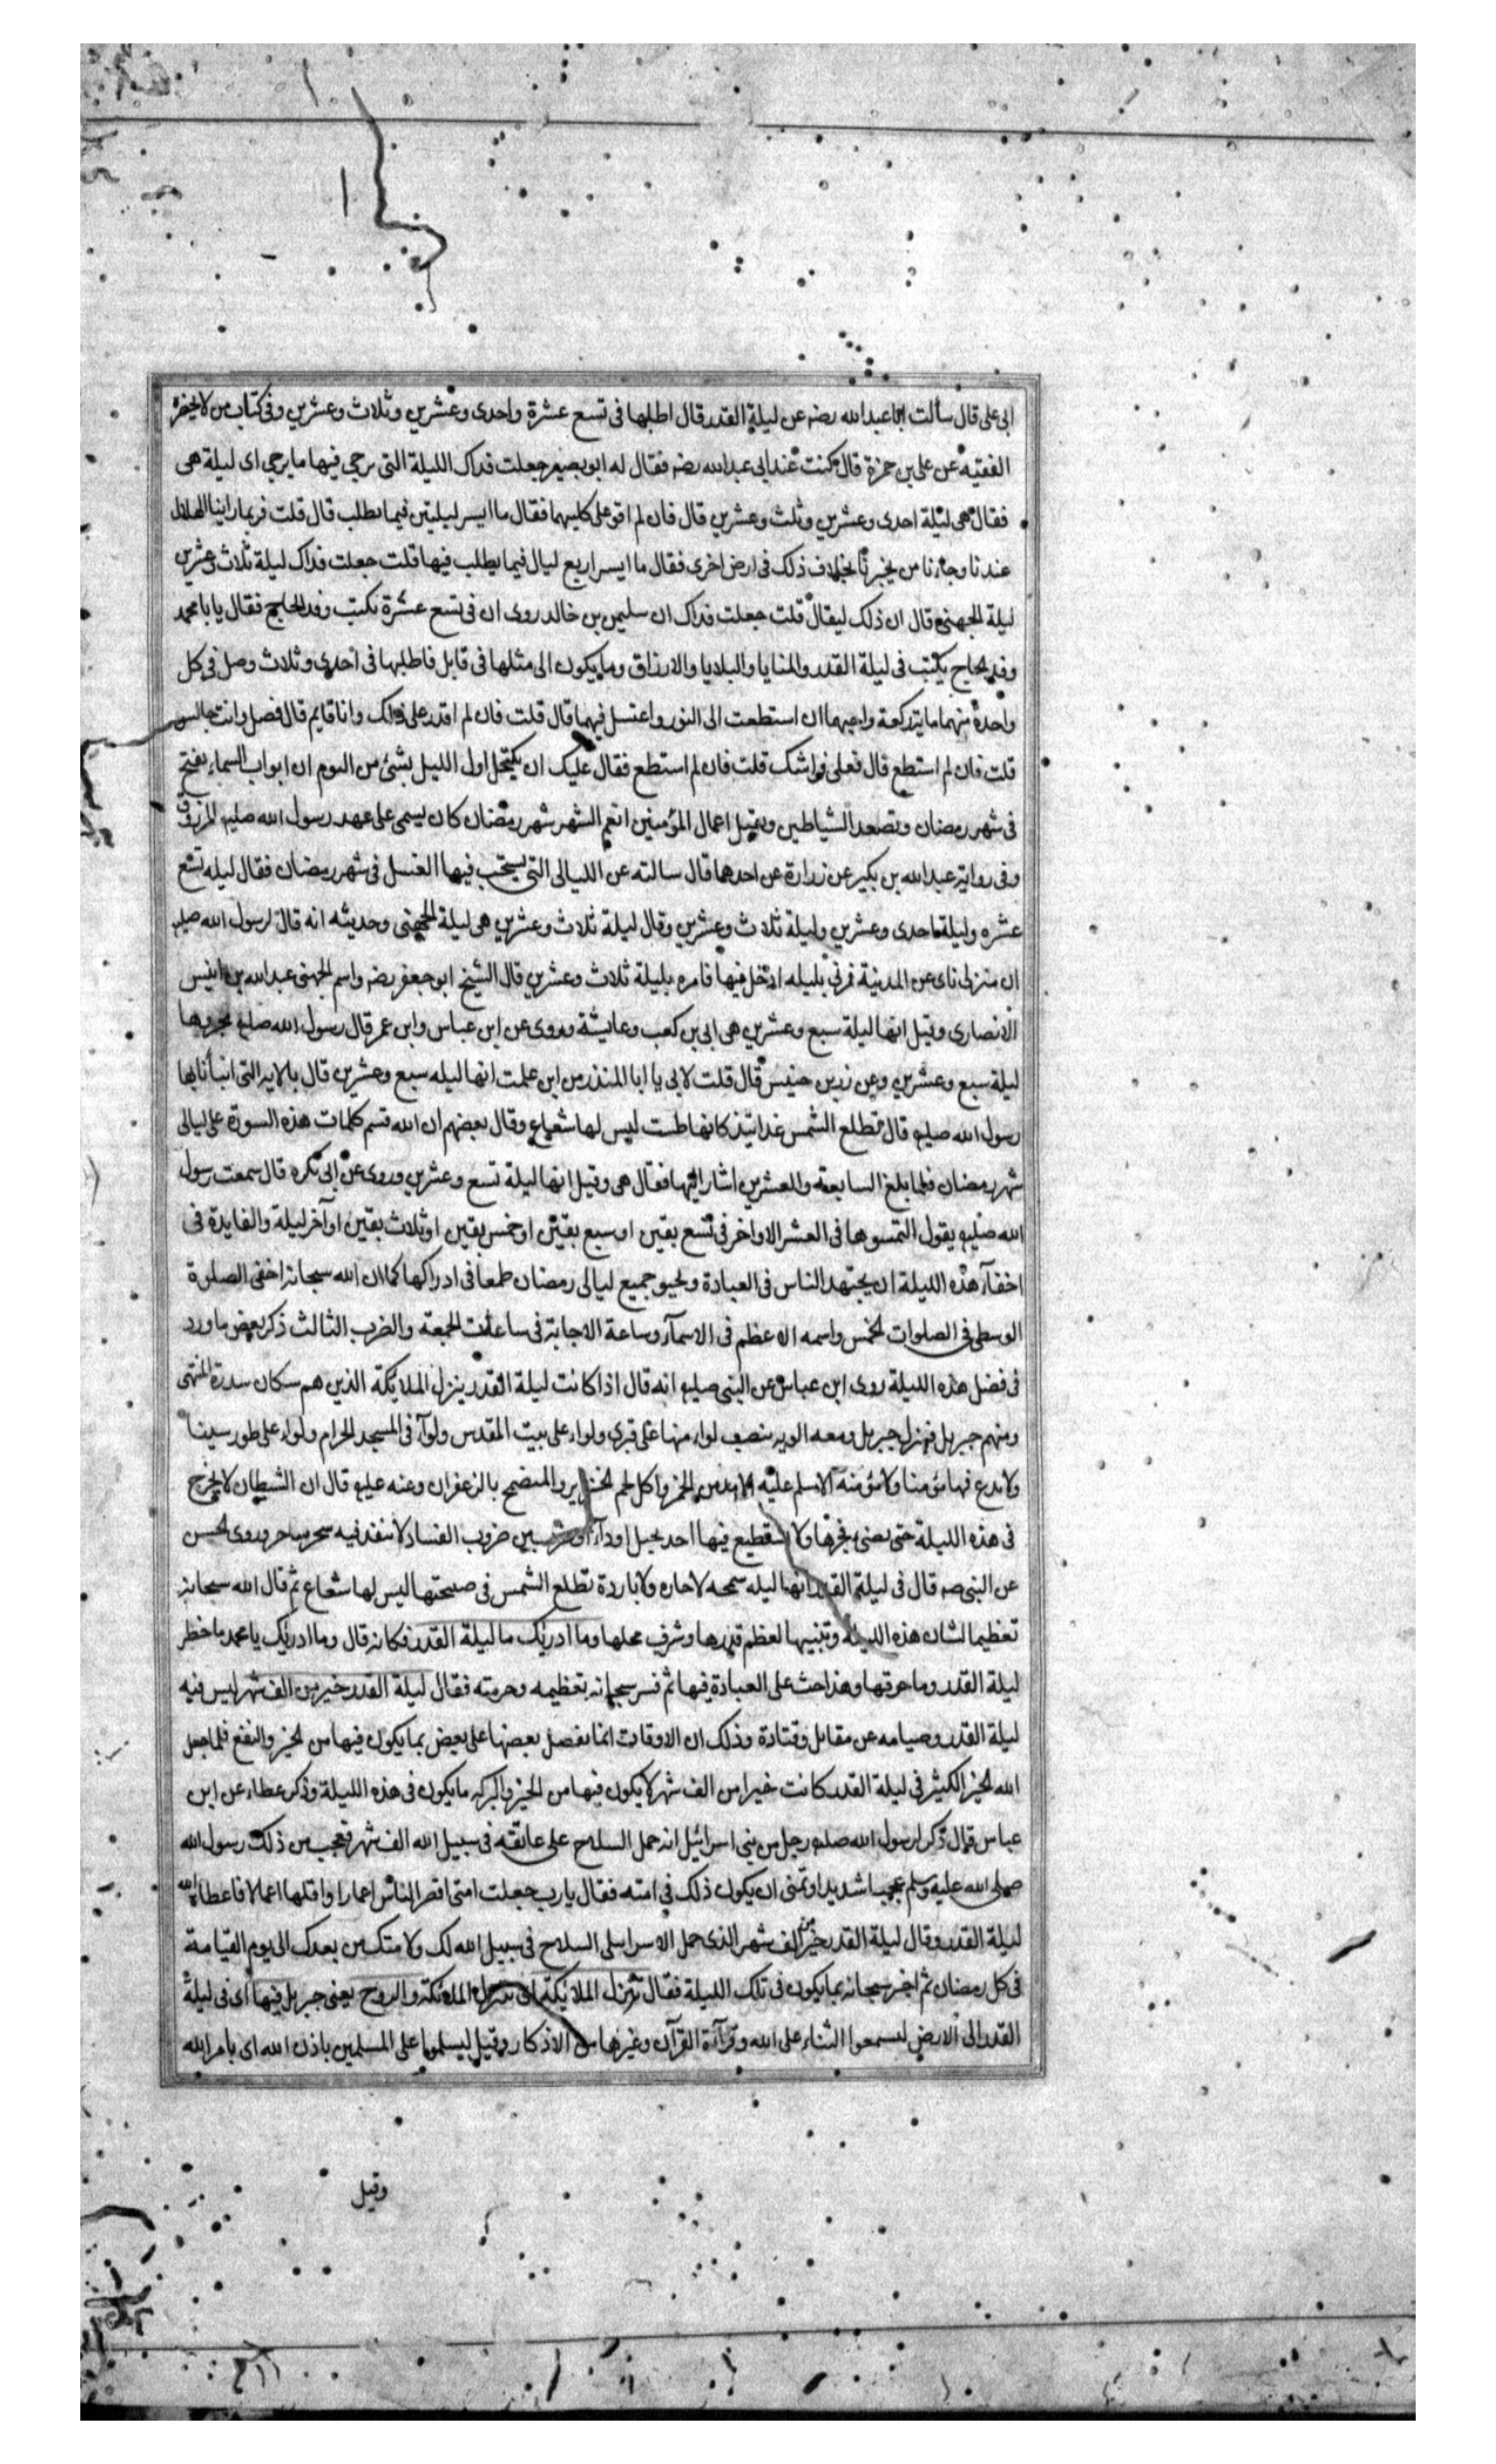 ابى على قال سألت ابا عبدالله رضه عن ليلة القدر قال اطلبها فى تسع عشرة واحدى وعشرين وثلاث وعشرين وفى كتاب من لا يحضره
الفقيه عن على بن حمزة قال كنت عند ابى عبدالله رضه فقال له ابو بصير جعلت فداك الليلة التى يرجى فيها ما يرجى اى ليلة هى
فقال هى ليلة احدى وعشرين وثلث وعشرين قال فان لم اقو على كليهما فقال ما ايسر ليلتين فيما تطلب قال قلت فربما راينا الهلال
عندنا وجاءنا من يخبرنا بخلاف ذلك فى ارض اخرى فقال ما ايسر اربع ليال فيما يطلب فيها قلت جعلت فداك ليلة ثلاث وعشرين
ليلة الجهنى قال ان ذلك ليقال قلت جعلت فداك ان سليمن بن خالد روى ان فى تسع عشرة تكتب وفد الحاج فقال يا با محمد
وفد الحاج يكتب فى ليلة القدر والمنايا والبلايا والارزاق وما يكون الى مثلها فى قابل فاطلبها فى احدى وثلاث وصل فى كل
واحدة منهما ماية ركعة واحيهما ان استطعت الى النور واغتسل فيهما قال قلت فان لم اقدر على ذلك وانا قايم قال فصل وانت جالس
قلت فان لم استطع قال فعلى فراشك قلت فان لم استطع فقال عليك ان تكتحل اول الليل بشئ من النوم ان ابواب السماء تفتح
فى شهر رمضان وتصفد الشياطين وتقبل اعمال المؤمنين نعم الشهر شهر رمضان كان يسمى على عهد رسول الله صليه المرزوق
وفى رواية عبدالله بن بكير عن زرارة عن احدهما قال سالته عن الليالى التى يستحب فيها الغسل فى شهر رمضان فقال ليله تسع
عشره وليلة احدى وعشرين وليلة ثلاث وعشرين وقال ليلة ثلاث وعشرين هى ليلة الجهنى وحديثه انه قال لرسول الله صليه
ان منزلى ناى عن المدينة فمرنى بليله ادخل فيها فامره بليلة ثلاث وعشرين قال الشيخ ابو جعفر رضه واسم الجهنى عبدالله بن انيس
الانصارى وقيل انها ليلة سبع وعشرين هى ابى بن كعب وعايشة وروى عن ابن عباس وابن عمر قال رسول الله صليه تحروها
ليلة سبع وعشرين وعن زر بن حبيش قال قلت لابى يا ابا المنذر من اين علمت انها ليله سبع وعشرين قال بالاية التى انبأنا بها
رسول الله صليه قال تطلع الشمس غداتئذ كانها طست ليس لها شعاع وقال بعضهم ان الله قسم كلمات هذه السورة على ليالى
شهر رمضان فلما بلغ السابعة والعشرين اشار اليها فقال هى وقيل انها ليلة تسع وعشرين وروى عن ابى بكره قال سمعت رسول
الله صليه يقول التمسوها فى العشر الاواخر فى تسع بقين او سبع بقين او خمس بقين او ثلاث بقين او آخر ليلة والفايدة فى
اخفآء هذه الليلة ان يجتهد الناس فى العبادة ويحيو جميع ليالى رمضان طمعا فى ادراكها كما ان الله سبحانه اخفى الصلوة
الوسطى فى الصلوات الخمس واسمه الاعظم فى الاسمآء وساعة الاجابة فى ساعات الجمعة والضرب الثالث ذكر بعض ما ورد
فى فضل هذه الليلة روى ابن عباس عن النبى صليه انه قال اذا كانت ليلة القدر ينزل الملائكة الذين هم سكان سدرة المنتهى
ومنهم جبريل فينزل جبريل ومعه الوية ينصب لواء منها على قبرى ولواء على بيت المقدس ولوآء فى المسجد الحرام ولواء على طور سينا
ولا يدع فيها مؤمنا ولا مؤمنة الا سلم عليه الا مدمن الخمر واكل لحم الخنزير والمتضمخ بالزعفران وعنه عليه قال ان الشيطان لا يخرج
فى هذه الليلة حتى يضئ فجرها ولا يستطيع فيها احد بخبل او داء او ضرب من ضروب الفساد لا ينفذ فيه سحر ساحر وروى الحسن
عن النبى صه قال فى ليلة القدر انها ليله سمحه لا حاره ولا باردة تطلع الشمس فى صبيحتها ليس لها شعاع ثم قال الله سبحانه
تعظيما لشان هذه الليلة وتنبيها لعظم قدرها وشرف محلها وما ادريك ما ليلة القدر فكانه قال وما ادريك يا محمد ما خطر
ليلة القدر وما حرمتها وهذا حث على العبادة فيها ثم فسر سبحانه تعظيمه وحرمته فقال ليلة القدر خير من الف شهر ليس فيه
ليلة القدر وصيامه عن مقاتل وقتادة وذلك ان الاوقات انما يفضل بعضها على بعض بما يكون فيها من الخير والنفع فلما جعل
الله الخير الكثير فى ليلة القدر كانت خيرا من الف شهر لا يكون فيها من الخير والبركه ما يكون فى هذه الليلة وذكر عطاء عن ابن
عباس قال ذكر لرسول الله صليه رجل من بنى اسرائيل انه حمل السلاح على عاتقه فى سبيل الله الف شهر فعجب من ذلك رسول الله
صلى الله عليه وسلم عجبا شديدا وتمنى ان يكون ذلك فى امته فقال يا رب جعلت امتى اقصر الناس اعمارا واقلها اعمالا فاعطاه الله
ليلة القدر وقال ليلة القدر خير من الف شهر الذى حمل الاسرايلى السلاح فى سبيل الله لك ولامتك من بعدك الى يوم القيامة
فى كل رمضان ثم اخبر سبحانه بما يكون فى تلك الليلة فقال تنزل الملائكة اى تتنزل الملائكة والروح يعنى جبريل فيها اى فى ليلة
القدر الى الارض ليسمعوا الثناء على الله وقرآءة القرآن وغيرها من الاذكار وقيل ليسلموا على المسلمين باذن الله اى بامر الله
وقيل